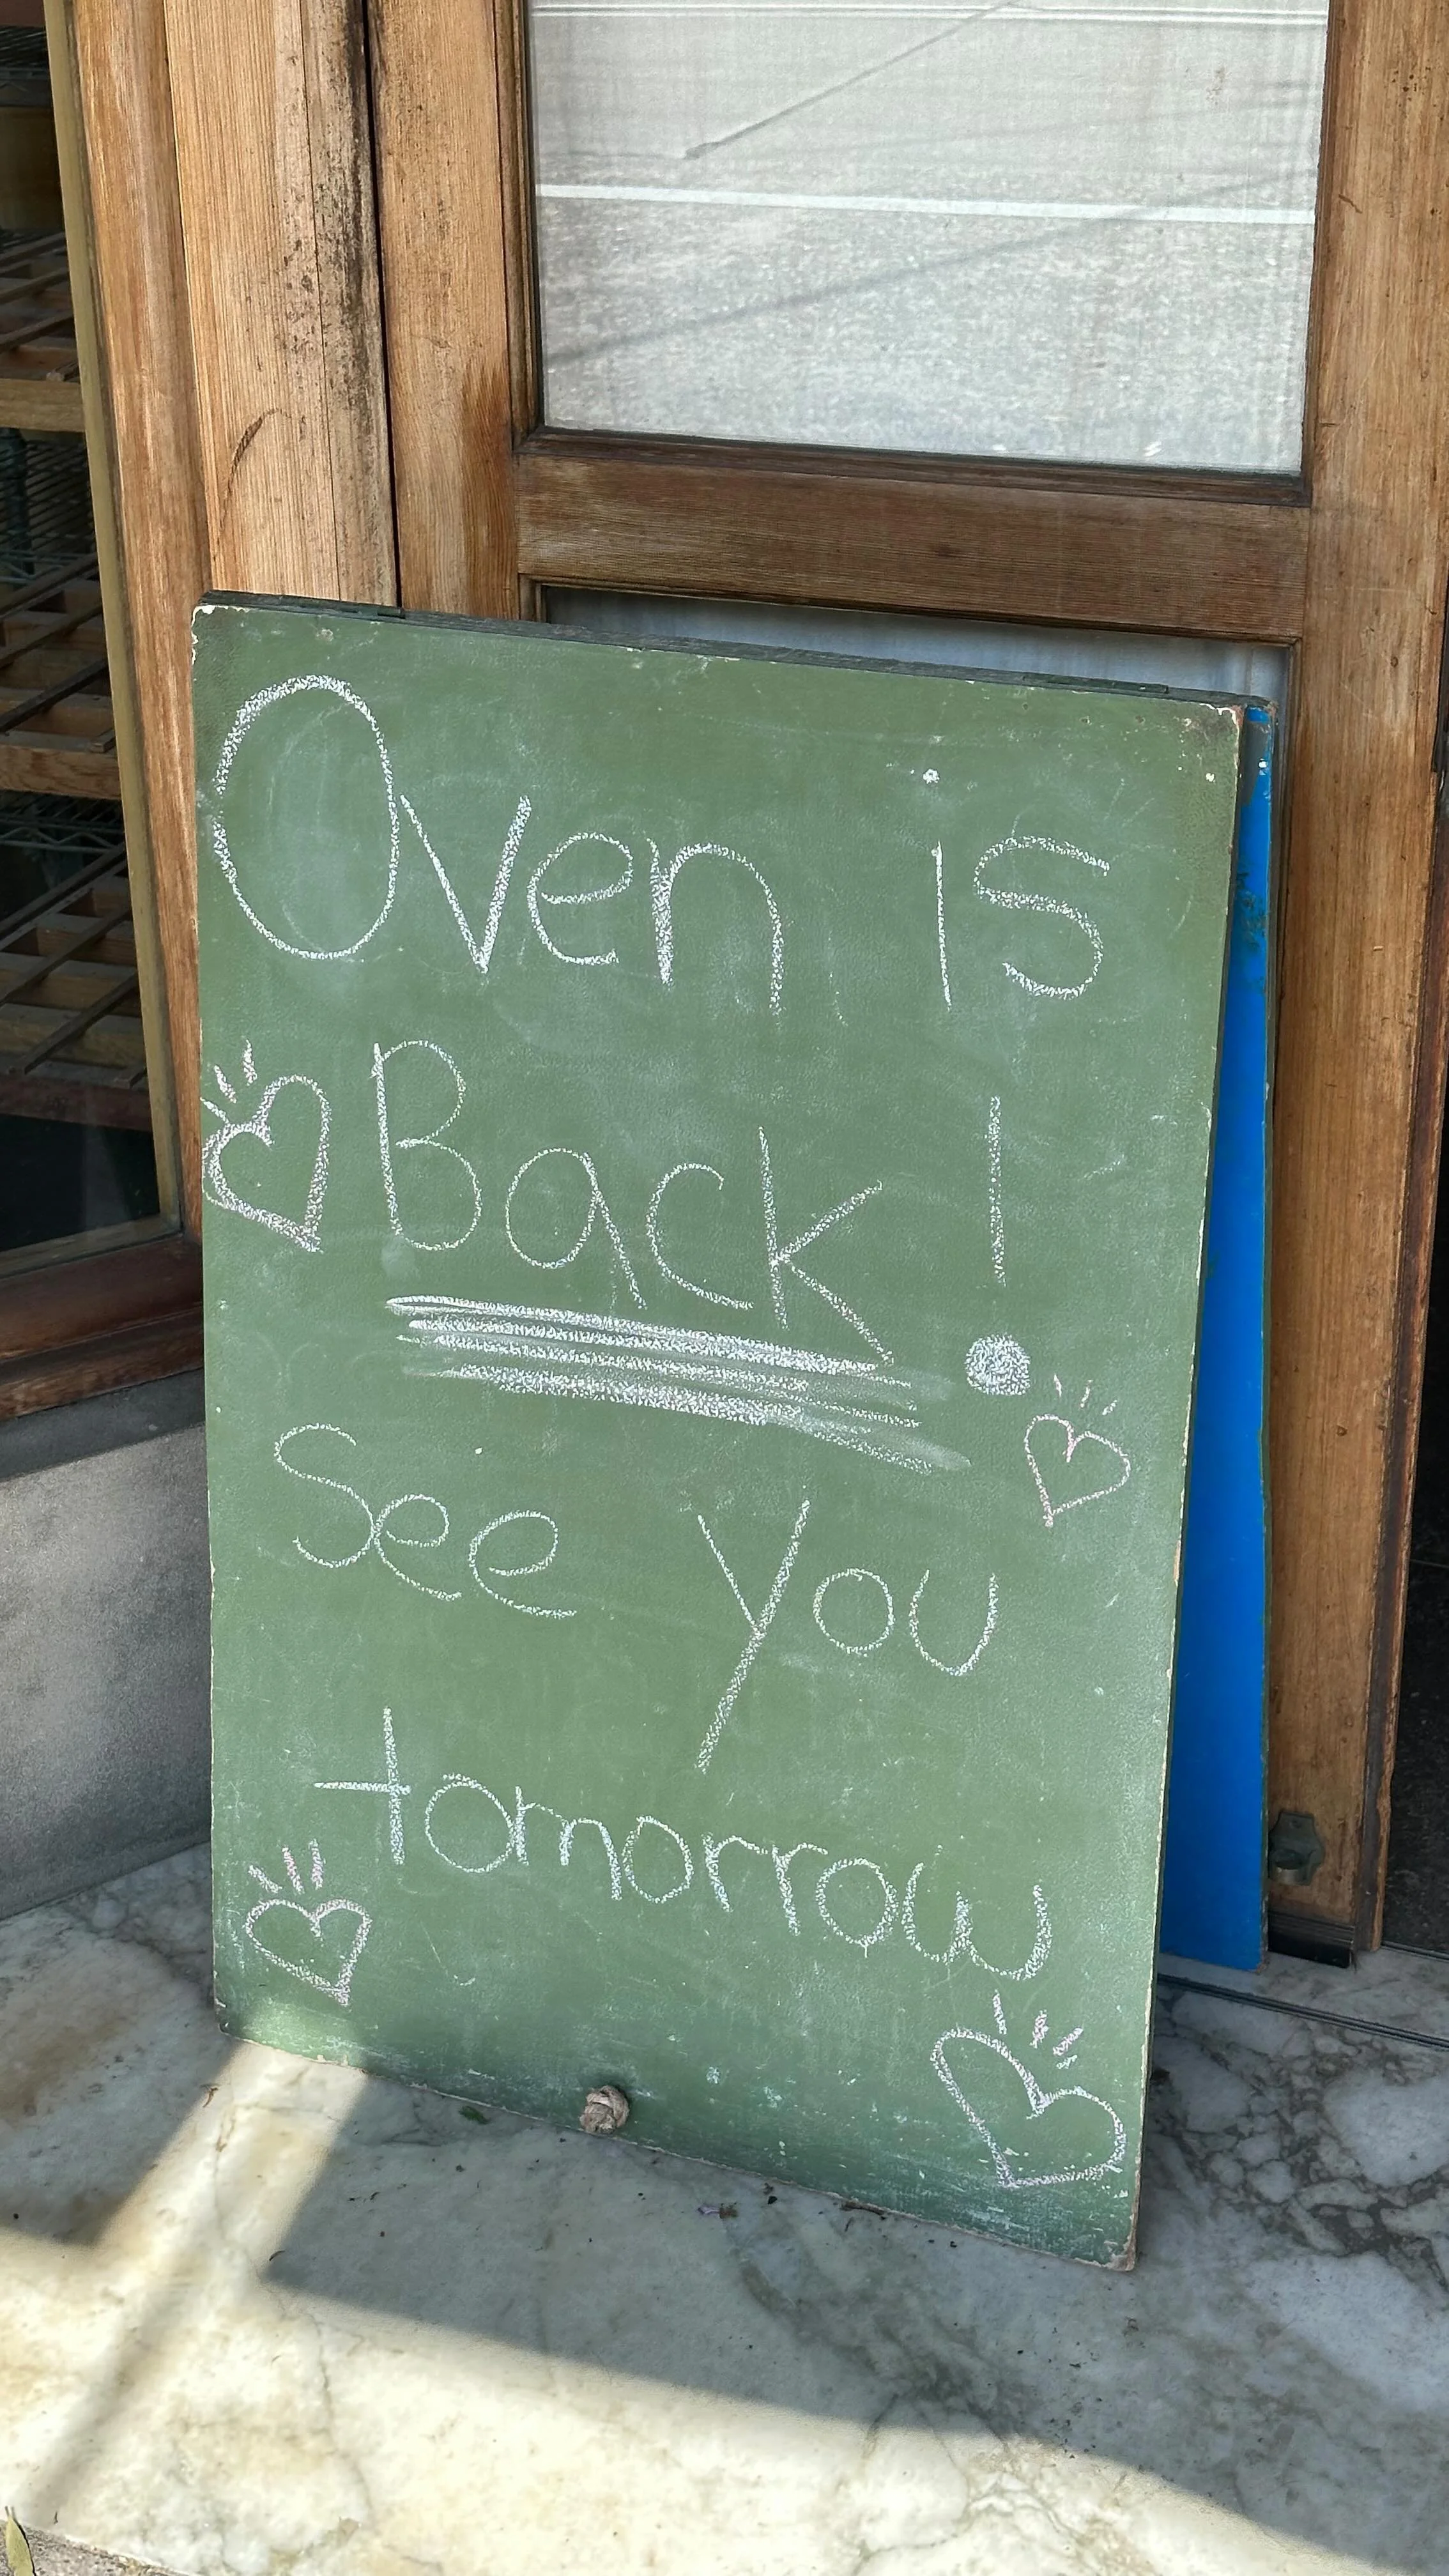 Oven is
Back!
See you
tomorrow